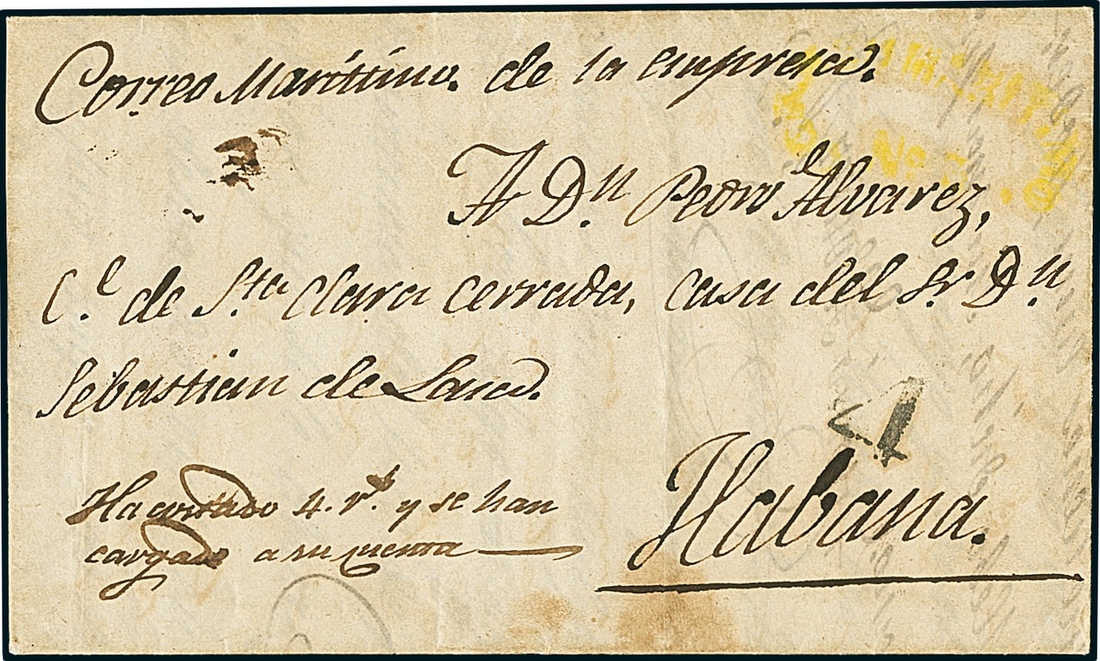 Correo Maritimo. de la empresa.
A Dn. Pedro Alvarez,
Ce. de Sta Clara cerrada, casa del Sr. Dn
Sebastian de
4
Habana.
Ha costado 4. rs. y se han
cargado a su cuenta